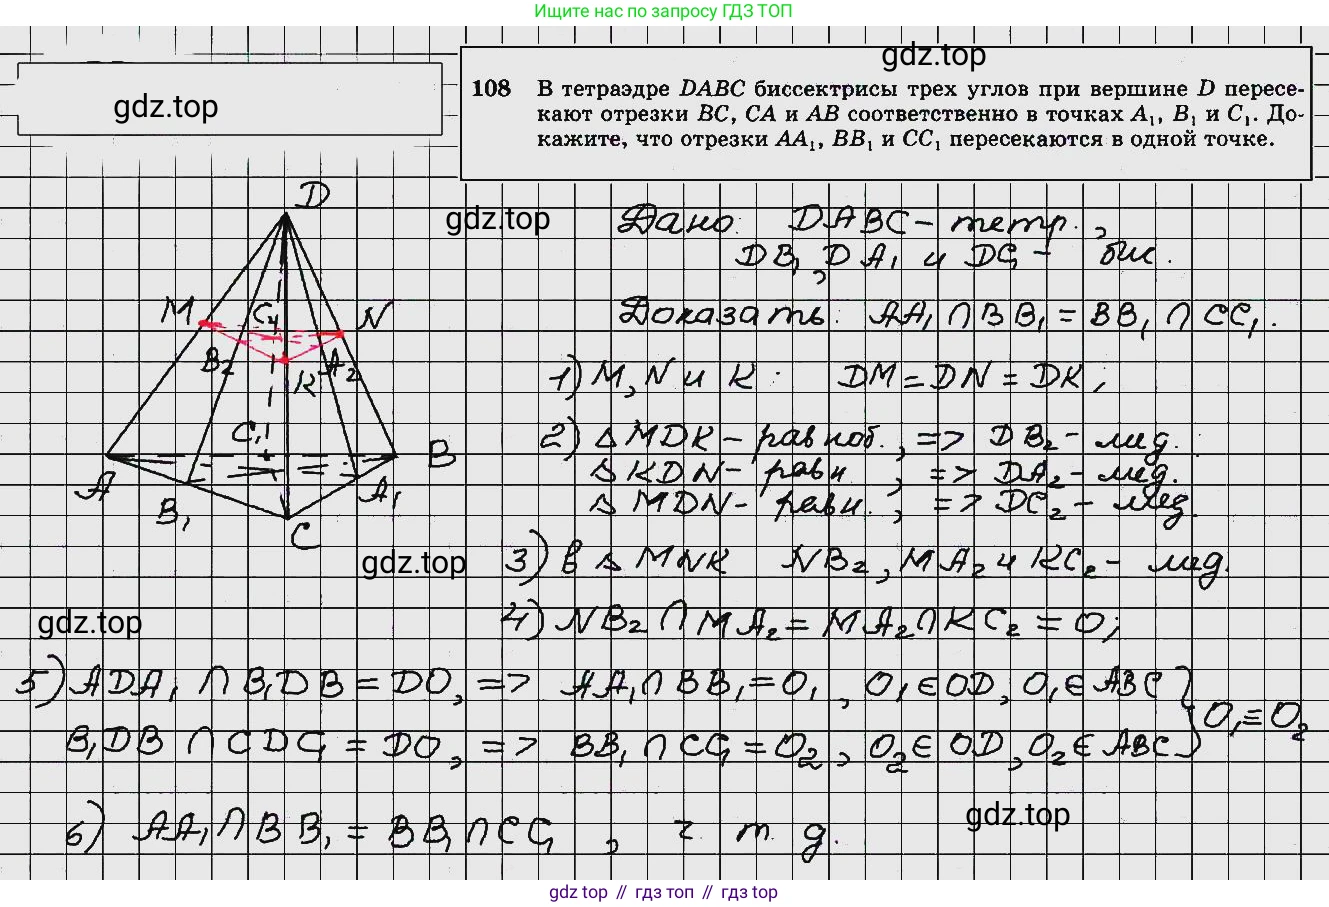 Ищите нас по запросу ГДЗ ТОП
gdz.top
gdz.top
108 В тетраэдре DABC биссектрисы трех углов при вершине D пересе-
кают отрезки BC, CA и AB соответственно в точках A₁, B₁ и C₁. До-
кажите, что отрезки AA₁, BB₁ и CC₁ пересекаются в одной точке.
D
gdz.top
Дано: DABC - тетр.,
DB₁, DA₁ и DC₁ - бис.
M C₂ N
Доказать: AA₁ ∩ BB₁ = BB₁ ∩ CC₁.
B₂ K A₂
1) M, N и K: DM = DN = DK;
2) △MDK - равноб., => DB₂ - мед.
△KDN - равн., => DA₂ - мед.
△MDN - равн., => DC₂ - мед.
C₁ B
A B₁ C A₁
gdz.top
3) в △MNK NB₂, MA₂ и KC₂ - мед.
gdz.top
4) NB₂ ∩ MA₂ = MA₂ ∩ KC₂ = O;
5) ADA₁ ∩ B₁DB = DO, => AA₁ ∩ BB₁ = O₁, O₁ ∈ OD, O₁ ∈ ABC
B₁DB ∩ CDC₁ = DO, => BB₁ ∩ CC₁ = O₂, O₂ ∈ OD, O₂ ∈ ABC } O₁ ≡ O₂
gdz.top
6) AA₁ ∩ BB₁ = BB₁ ∩ CC₁, ч т д.
gdz top // гдз топ // гдз top